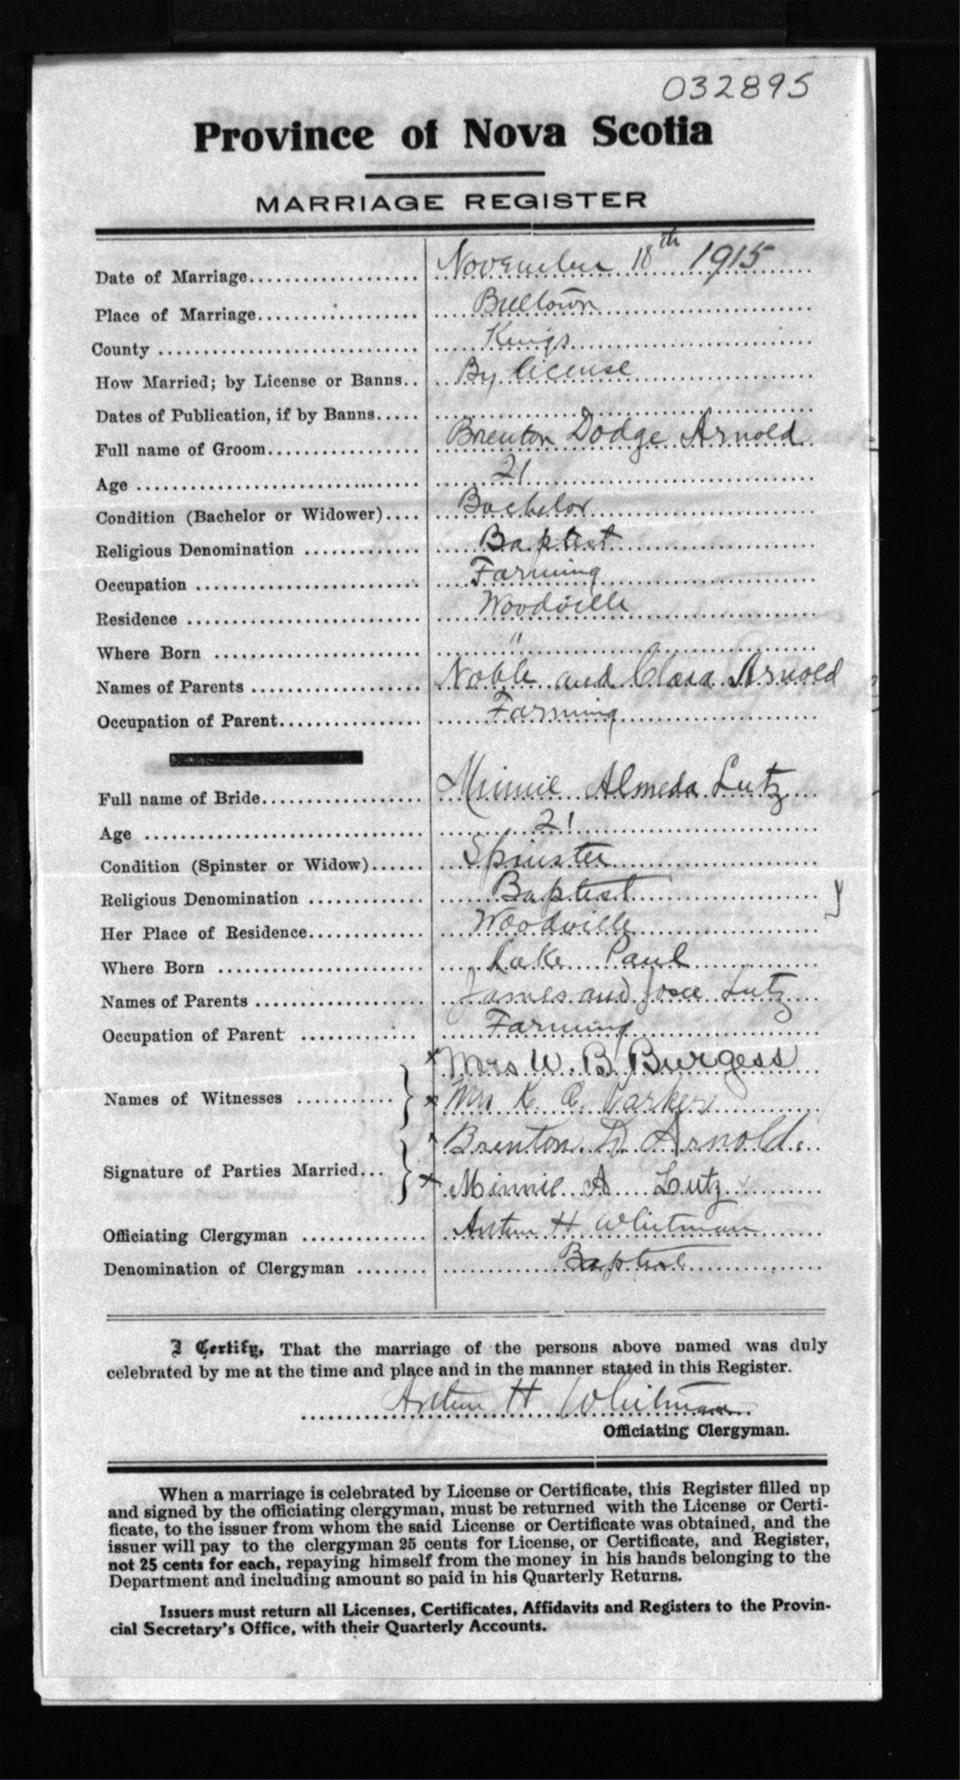 032895
Province of Nova Scotia
MARRIAGE REGISTER
Date of Marriage.................. November 18th 1915
Place of Marriage.................. Billtown
County .................. Kings
How Married; by License or Banns.. By license
Dates of Publication, if by Banns.....
Full name of Groom.................. Brenton Dodge Arnold
Age .................. 21
Condition (Bachelor or Widower).... Bachelor
Religious Denomination ............ Baptist
Occupation .................. Farming
Residence .................. Woodville
Where Born .................. "
Names of Parents .................. Noble and Clara Arnold
Occupation of Parent.................. Farming
Full name of Bride.................. Minnie Almeda Lutz
Age .................. 21
Condition (Spinster or Widow)...... Spinster
Religious Denomination ............ Baptist
Her Place of Residence............ Woodville
Where Born .................. Lake Paul
Names of Parents .................. James and Josie Lutz
Occupation of Parent ............ Farming
x Mrs W. B. Burgess
Names of Witnesses .......... x Mrs K. C. Parker
Brenton D. Arnold.
Signature of Parties Married... x Minnie A Lutz
Officiating Clergyman .............. Arthur H Whitman
Denomination of Clergyman ........ Baptist
I Certify, That the marriage of the persons above named was duly
celebrated by me at the time and place and in the manner stated in this Register.
Arthur H Whitman
Officiating Clergyman.
When a marriage is celebrated by License or Certificate, this Register filled up
and signed by the officiating clergyman, must be returned with the License or Certi-
ficate, to the issuer from whom the said License or Certificate was obtained, and the
issuer will pay to the clergyman 25 cents for License, or Certificate, and Register,
not 25 cents for each, repaying himself from the money in his hands belonging to the
Department and including amount so paid in his Quarterly Returns.
Issuers must return all Licenses, Certificates, Affidavits and Registers to the Provin-
cial Secretary's Office, with their Quarterly Accounts.